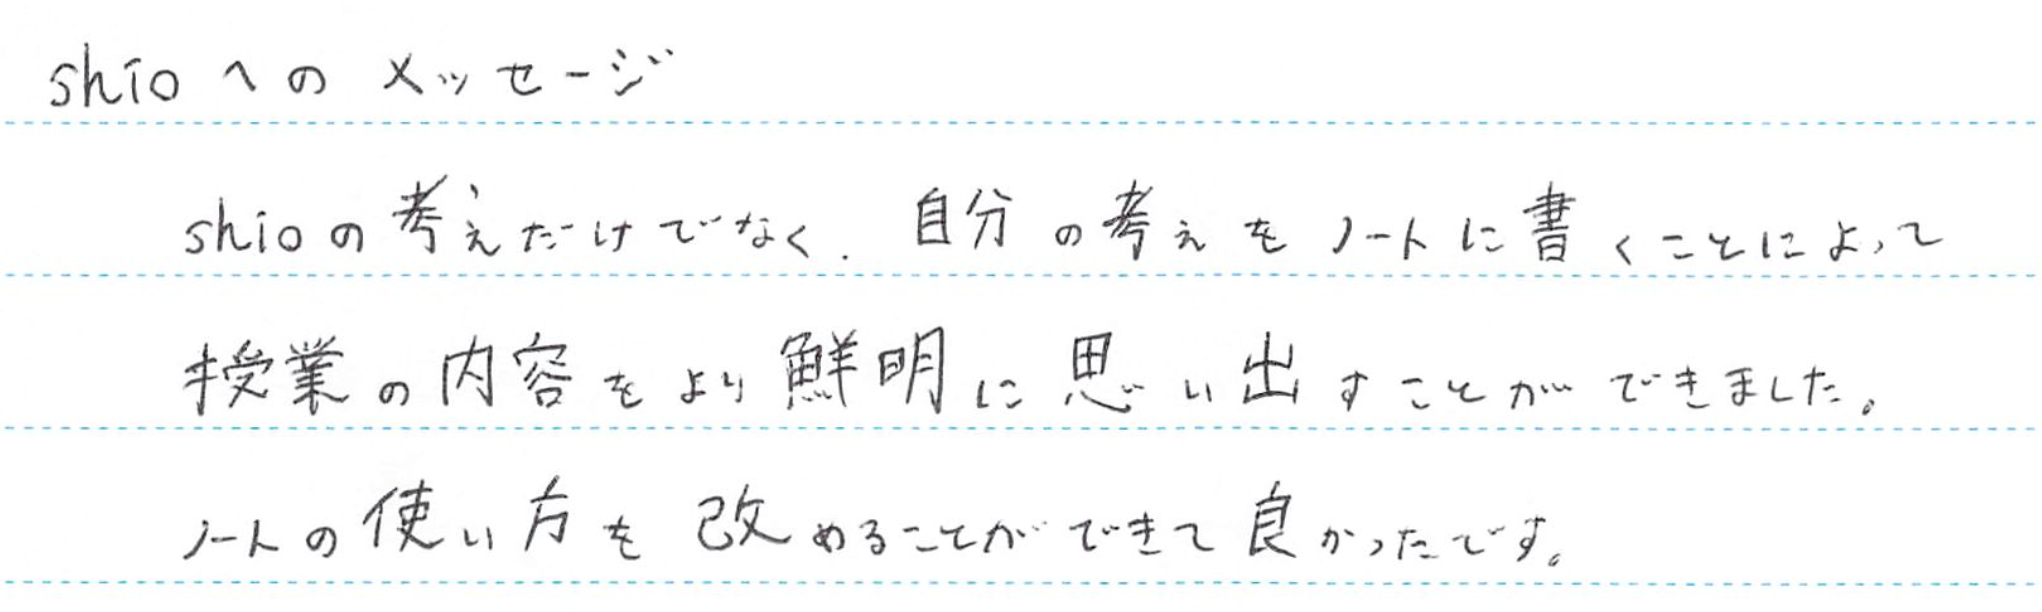 shioへのメッセージ
shioの考えだけでなく、自分の考えをノートに書くことによって
授業の内容をより鮮明に思い出すことができました。
ノートの使い方を改めることができて良かったです。